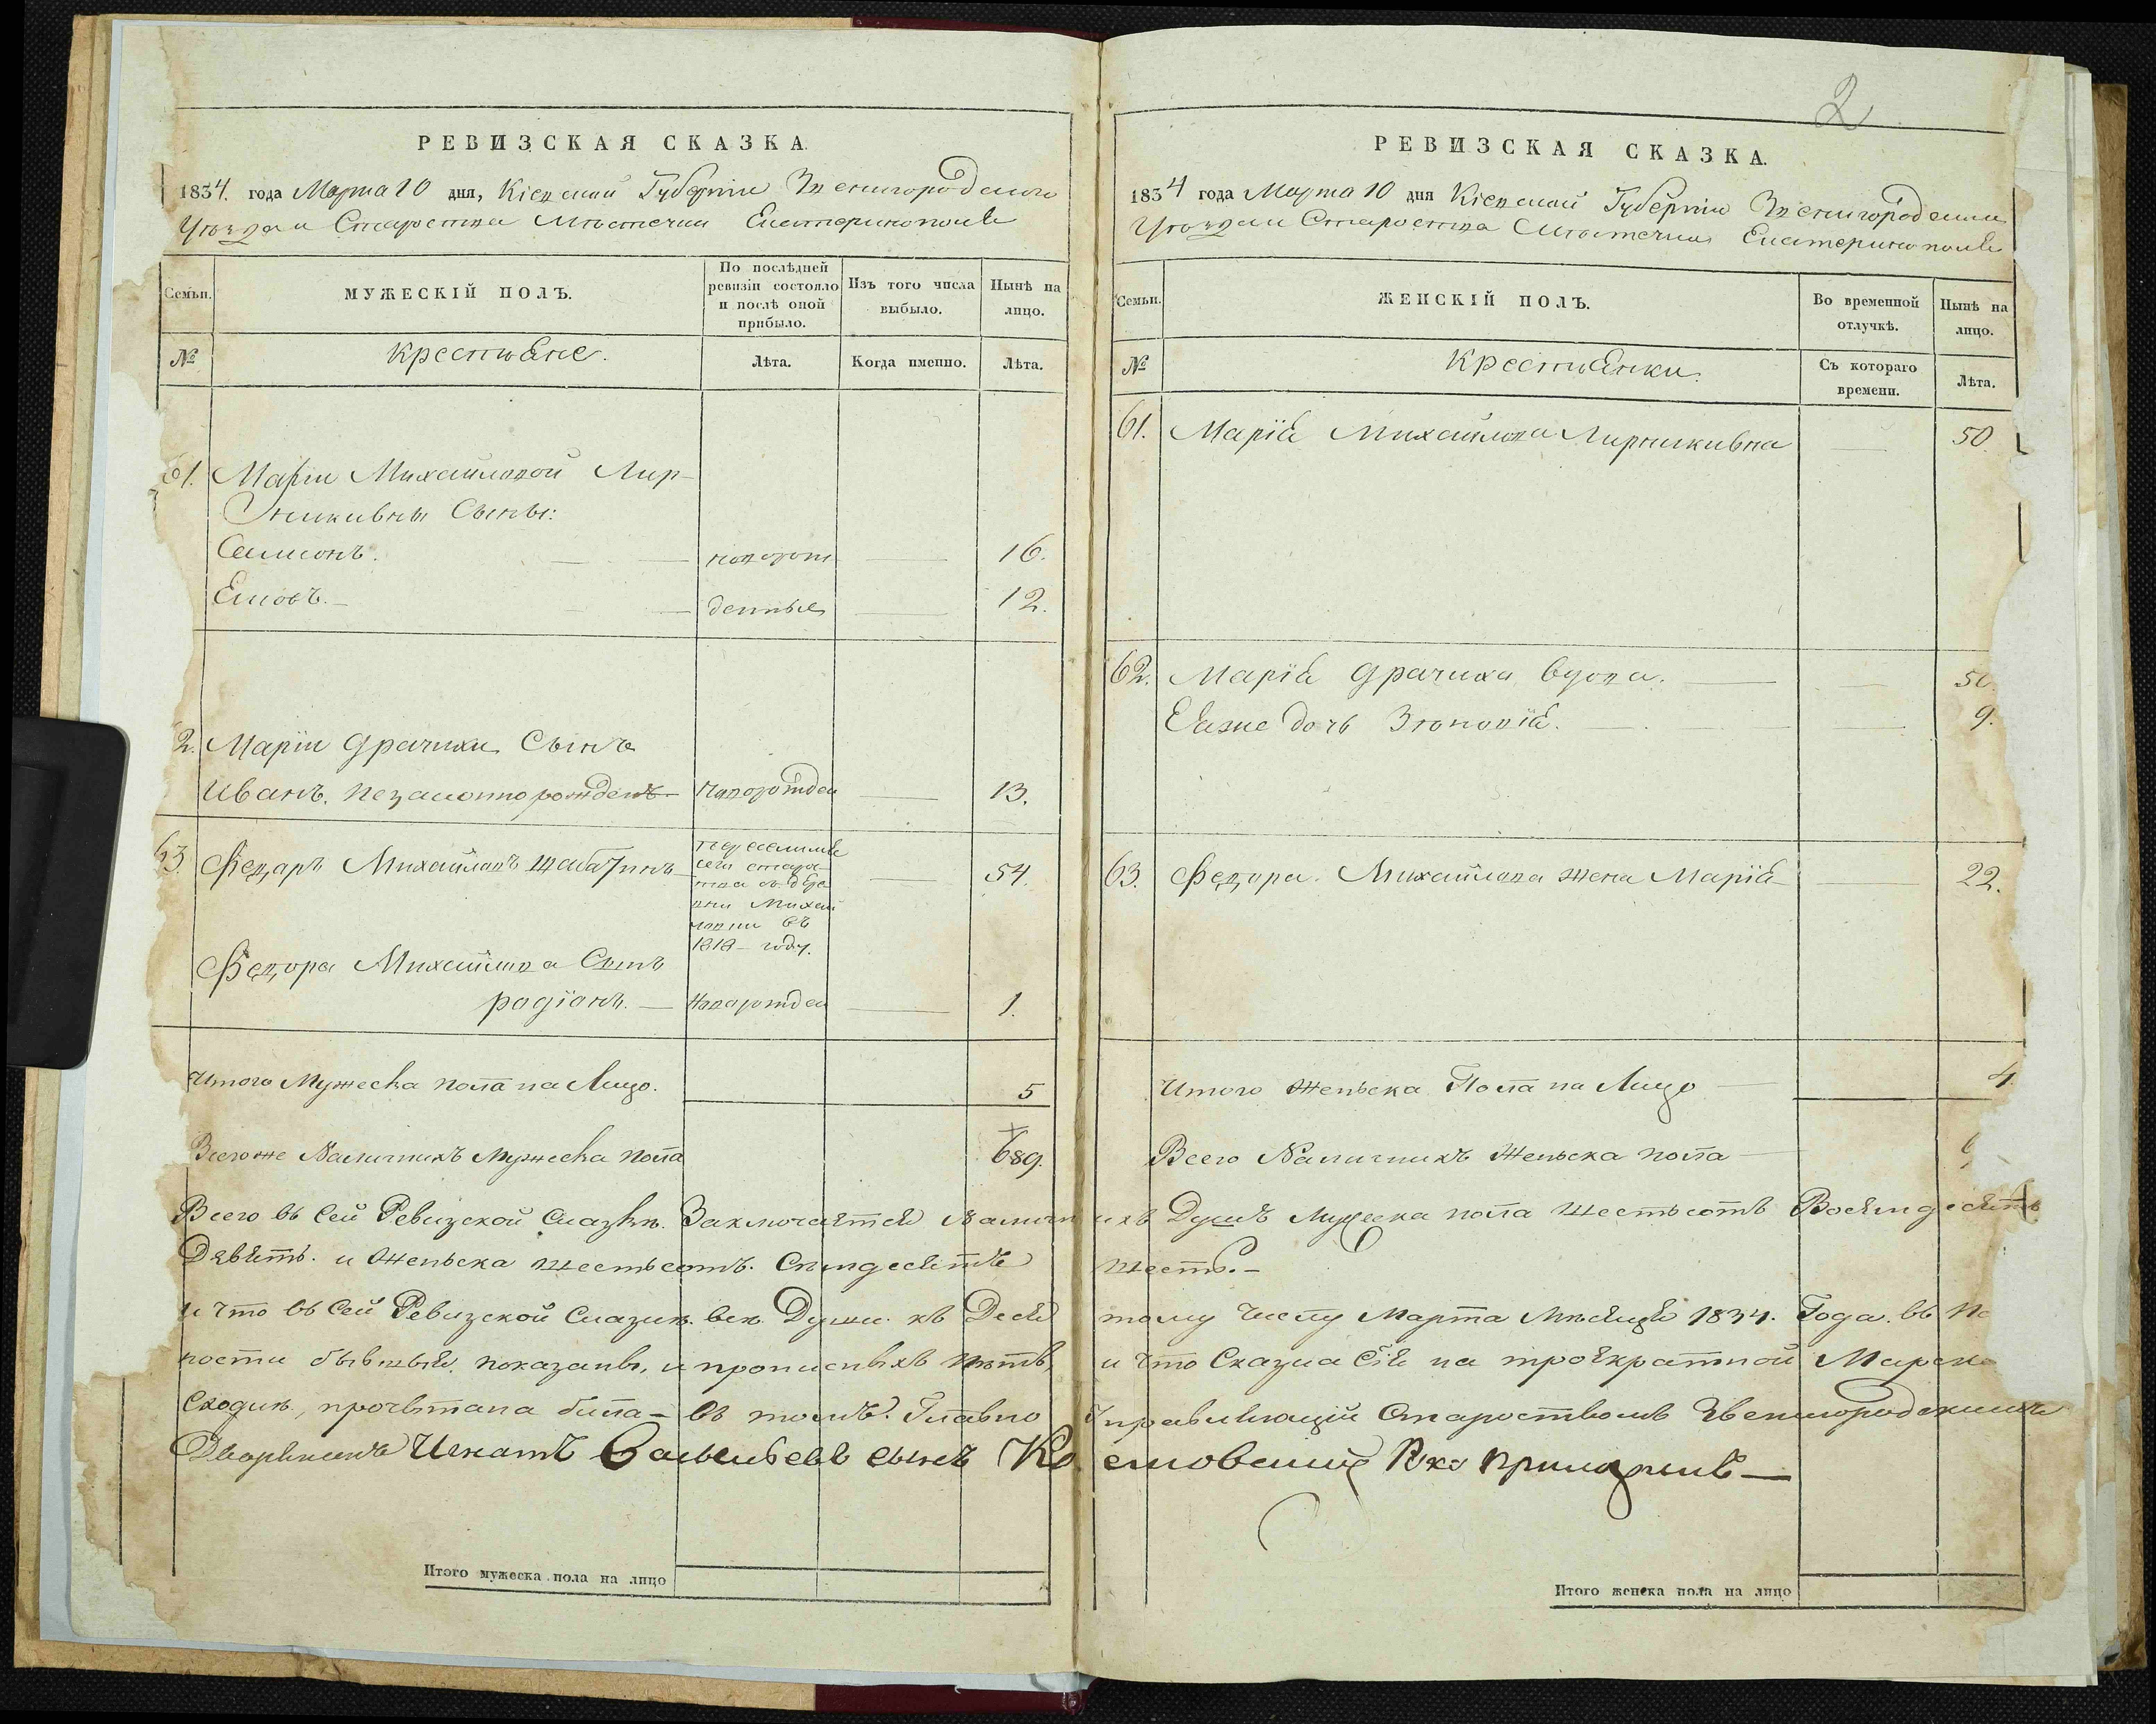 РЕВИЗСКАЯ СКАЗКА.
1834. года Марта 10 дня, Кіевской Губерніи Звенигородскаго
Уѣзда и Староства Мѣстечка Екатеринополя
Семьи.
МУЖЕСКІЙ ПОЛЪ.
По послѣдней ревизіи состояло и послѣ оной прибыло.
Изъ того числа выбыло.
Нынѣ на лицо.
№
Крестяне.
Лѣта.
Когда именно.
Лѣта.
61. Маріи Михайловой Лир-
никивны Сыны:
Самсонъ. новорож 16.
Есловъ. денные 12.
2. Маріи Драчихи Сынъ
Иванъ. незаконно рожденъ новорожден 13.
63. Федаръ Михайловъ переселился сего староства въ 1818 году. 54.
Федора Михайлова Сынъ
радіонъ. новорожден 1.
Итого Мужеска пола на Лицо. 5
Всего же Наличнихъ Мужеска пола 689.
РЕВИЗСКАЯ СКАЗКА.
2
1834 года Марта 10 дня Кіевской Губерніи Звенигородскаго
Уѣзда и Староства Мѣстечка Екатеринополя
Семьи.
ЖЕНСКІЙ ПОЛЪ.
Во временной отлучкѣ.
Нынѣ на лицо.
№
Крестянки.
Съ котораго времени.
Лѣта.
61. Марія Михайлова Лирникивна 50.
62. Марія Драчиха вдова. 50.
Еяже дочь Зѣновія. 9.
63. Федора Михайлова жена Марія 22.
Итого Женьска Пола на Лицо 4.
Всего Наличнихъ Женьска пола 6
Всего въ сей Ревизской Сказкѣ Заключается Наличнихъ Душъ мужеска пола шестьсотъ Восямдесятъ
Девять. и Женьска шестьсотъ. Семдесятъ шесть.
и что въ сей Ревизской Сказкѣ всѣ Души къ Десятому числу Марта Мѣсяця 1834. Года. въ
ности бывшыя показаны, и прописныхъ нѣтъ, и что Сказка Сія на троякратной
Сходкѣ, прочытана била въ томъ. Главно Управляющій Староствомъ Звенигородскимъ
Дворянинъ Игнатъ Васильевъ сынъ руку приложилъ
Итого мужеска пола на лицо
Итого женска пола на лицо